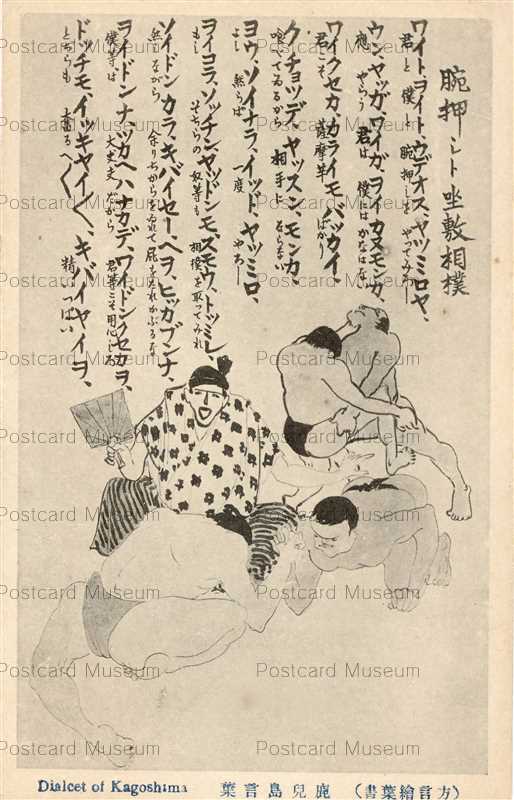 腕押シト坐敷相撲
ワイト、ヲイト、ウデオス、ヤツミロヤ、
君と僕と腕押しをやつてみろー
ウン、ヤッガ、ワイガ、ヲイカヌモンカ、
應やらう 君は僕にはかなはない
ワイクセカ、カライモ、バッカイ、
君こそ 薩摩芋ばかり
クチョッデ、ヤッスン、モンカ、
喰つてゐるから 相手にならない
ヨウ、ソイナラ、イッド、ヤッミロ、
よし 然らば 一度 やらー
ヲイコラ、ソッチンヤッドンモ、スモウ、トッミレ、
もし そちらの奴等も 相撲を取つてみれ
ソイドン、カラ、キバイセーヘヲ、ヒッカブンナ、
然しながら 余りちからを入れて屁を
ヲイドンナ、ツカヘハナカデ、ワイドンクセカヲ、
僕等は 大丈夫だから 君等こそ用心しろ
ドッチモ、イッキヤイ〱、キバイヤイヨ、
どちらも 精いっぱい
Postcard Museum
Dialcet of Kagoshima 鹿兒島言葉 （方言繪葉書）